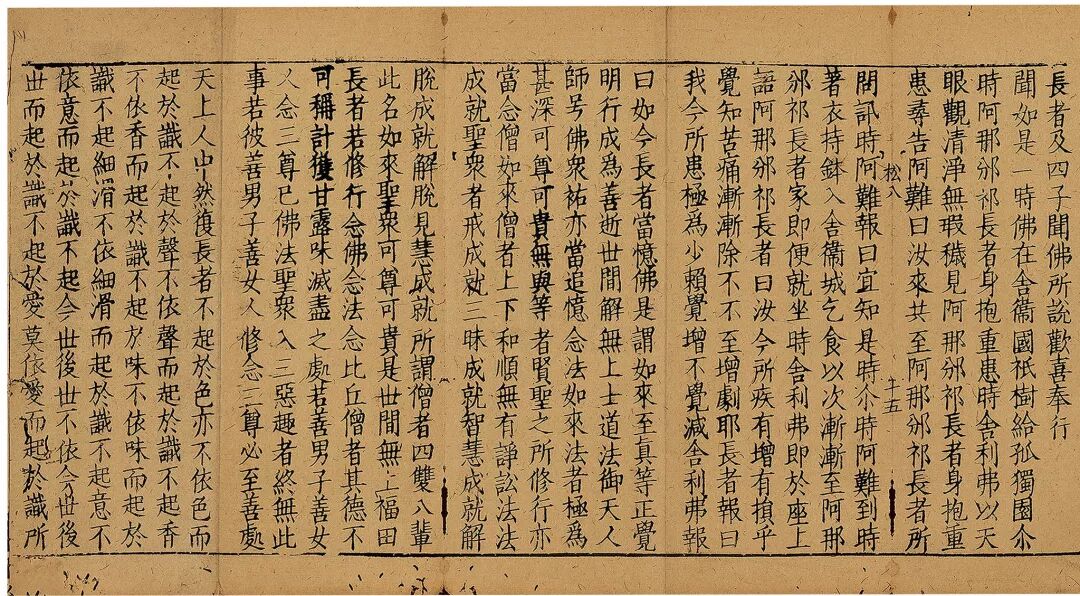 長者及四子聞佛所說歡喜奉行
聞如是一時佛在舍衞國祇樹給孤獨園尒
時阿那邠祁長者身抱重患時舍利弗以天
眼觀清淨無瑕穢見阿那邠祁長者身抱重
患尋告阿難曰汝來共至阿那邠祁長者所
松八
十五
問訊時阿難報曰宜知是時尒時阿難到時
著衣持鉢入舍衞城乞食以次漸漸至阿那
邠祁長者家即便就坐時舍利弗即於座上
語阿那邠祁長者曰汝今所疾有增有損乎
覺知苦痛漸漸除不不至增劇耶長者報曰
我今所患極為少賴覺增不覺減舍利弗報
曰如今長者當憶佛是謂如來至真等正覺
明行成為善逝世間解無上士道法御天人
師号佛衆祐亦當追憶念法如來法者極為
甚深可尊可貴無與等者賢聖之所修行亦
當念僧如來僧者上下和順無有諍訟法法
成就聖衆者戒成就三昧成就智慧成就解
脫成就解脫見慧成就所謂僧者四雙八輩
此名如來聖衆可尊可貴是世間無上福田
長者若修行念佛念法念比丘僧者其德不
可稱計獲甘露味滅盡之處若善男子善女
人念三尊已佛法聖衆入三惡趣者終無此
事若彼善男子善女人修念三尊必至善處
天上人中然復長者不起於色亦不依色而
起於識不起於聲不依聲而起於識不起香
不依香而起於識不起於味不依味而起於
識不起細滑不依細滑而起於識不起意不
依意而起於識不起今世後世不依今世後
世而起於識不起於愛莫依愛而起於識所